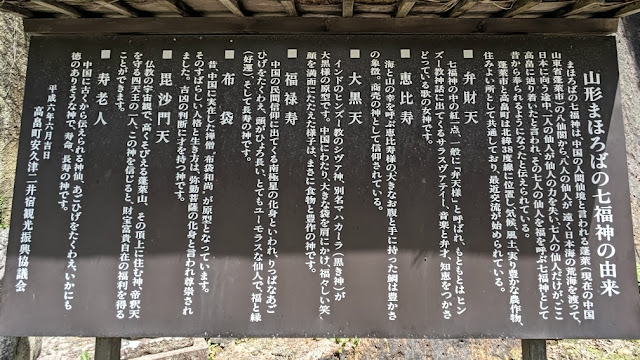 山形まほろばの七福神の由来
まほろばの七福神は中国の人間仙境と言われる蓬莱(現在の中国
山東省蓬莱市)の八仙閣から、八人の仙人が、遠く日本海の荒海を渡って、
日本に向う途中、一人の仙人が仙人の力を失い、七人の仙人だけが、ここ
高畠に辿り着いたと言われ、その七人の仙人を福を呼ぶ七福神として
昔から奉られるようになったと伝えられている。
蓬莱市と高畠町は北緯38度線に位置し、気候、風土、実り豊かな農作物、
住みよい所として共通しており、最近交流が始められている。
■弁財天
七福神の中の紅一点、一般に「弁天様」と呼ばれ、もともとはヒン
ズー教神話に出てくるサラスヴァティー、音楽と弁才、知恵をつかさ
どっている歌の女神です。
■恵比寿
海と山の幸を呼ぶ恵比寿様の大きなお腹と手に持った鯛は豊かさ
の象徴。商売の神として信仰されている。
■大黒天
インドのヒンズー教のシヴァ神、別名マハカーラ(黒き神)が
大黒様の原型です。中国にわたり、大きな袋を肩にかけ、福々しい笑
顔を満面にたたえた様子は、まさに食物と豊作の神です。
■福禄寿
中国の民間信仰に出てくる南極星の化身といわれ、りっぱなあご
ひげをたくわえ、頭がひょろ長い、とてもユーモラスな仙人で、福と縁
(好運)、そして長寿の神です。
■布袋
昔、中国に実在した禅僧、布袋和尚が原型となっています。
そのすばらしい人格と生き方は、弥勒菩薩の化身と言われ尊崇され
ました。吉凶の判断に才を持つ神です。
■毘沙門天
仏教の宇宙観で、高くそびえる蓬莱山、その頂上に住む神、帝釈天
を守る四天王の一人、この神を信じると、財宝富貴自在の福利を得る
ことができます。
■寿老人
中国に古くから伝えられる神仙、あごひげをたくわえ、いかにも
徳のありそうな神で、寿命、長寿の神です。
平成六年六月吉日
高畠町安久津二井宿観光振興協議会